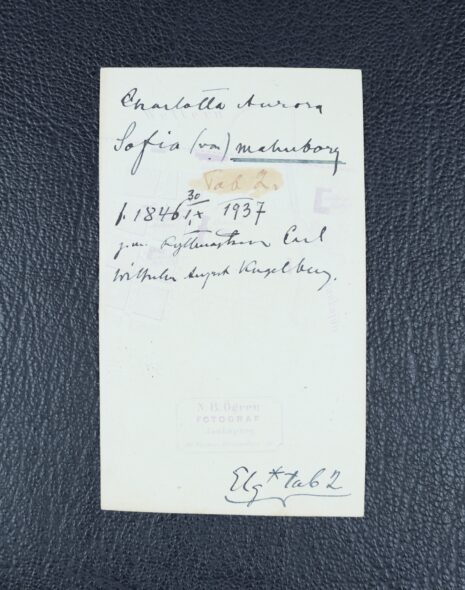 Charlotta Aurora
Sofia (von) Malmborg
Tab 2.
f. 1846 30/ix 1937
g.m. Ryttmästaren Carl
Wilhelm August Kugelberg.
FOTOGRAF
Elg* tab 2